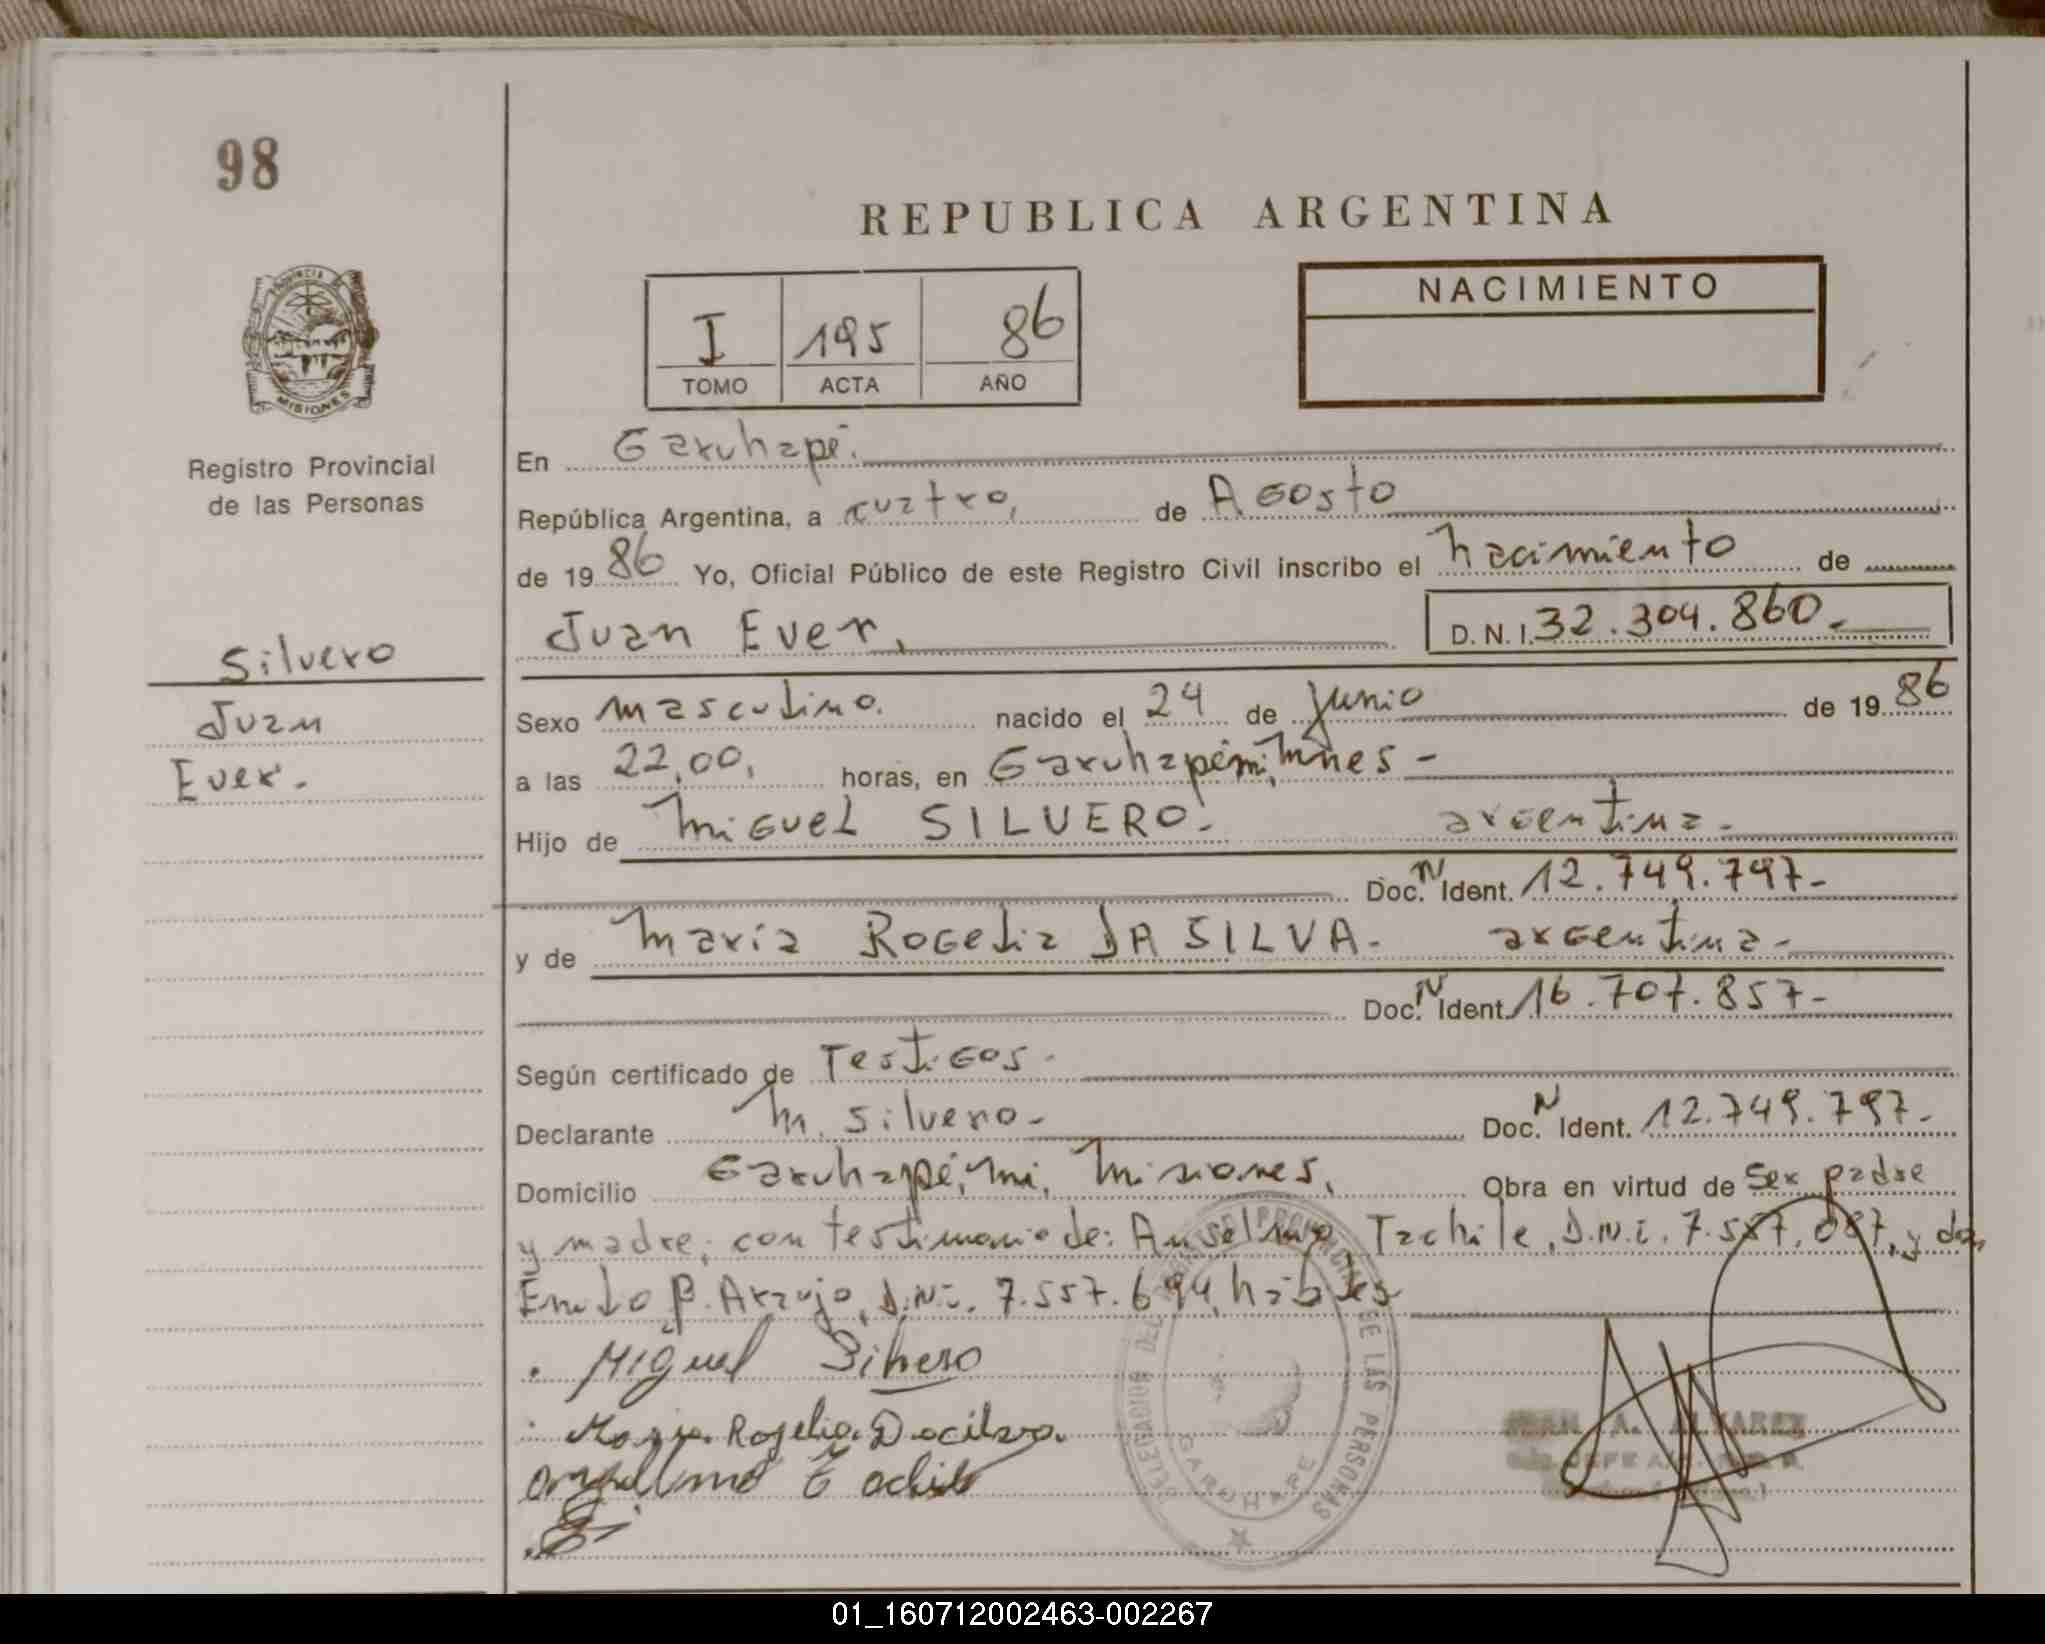 98
REPUBLICA ARGENTINA
PROVINCIA DE
MISIONES
Registro Provincial
de las Personas
I 195 86
TOMO ACTA AÑO
NACIMIENTO
En Garuhapé.
República Argentina, a cuatro, de Agosto
de 19 86 Yo, Oficial Público de este Registro Civil inscribo el nacimiento de
Juan Ever, D. N. I. 32.304.860.-
Silvero
Juan
Ever.
Sexo masculino. nacido el 24 de junio de 19 86
a las 22,00, horas, en Garuhapémi, Mnes -
Hijo de Miguel SILVERO. argentina.
Doc. N Ident. 12.749.797-
y de María Rogelia DA SILVA. argentina-
Doc. N Ident. 16.707.857-
Según certificado de Testigos.
Declarante M. Silvero- Doc. N Ident. 12.749.797-
Domicilio Garuhapé, mi, Misiones, Obra en virtud de ser padre
y madre, con testimonio de: Anselmo Tachile, D.N.i. 7.557.087, y don
Emilo P. Araujo, D.N.i. 7.557.694, hábiles
Miguel Silvero
Maria Rogelia Dacilva.
DELEGACION DEL REGISTRO PROVINCIAL DE LAS PERSONAS
GARUHAPE
JUAN A. ALVAREZ
01_160712002463-002267